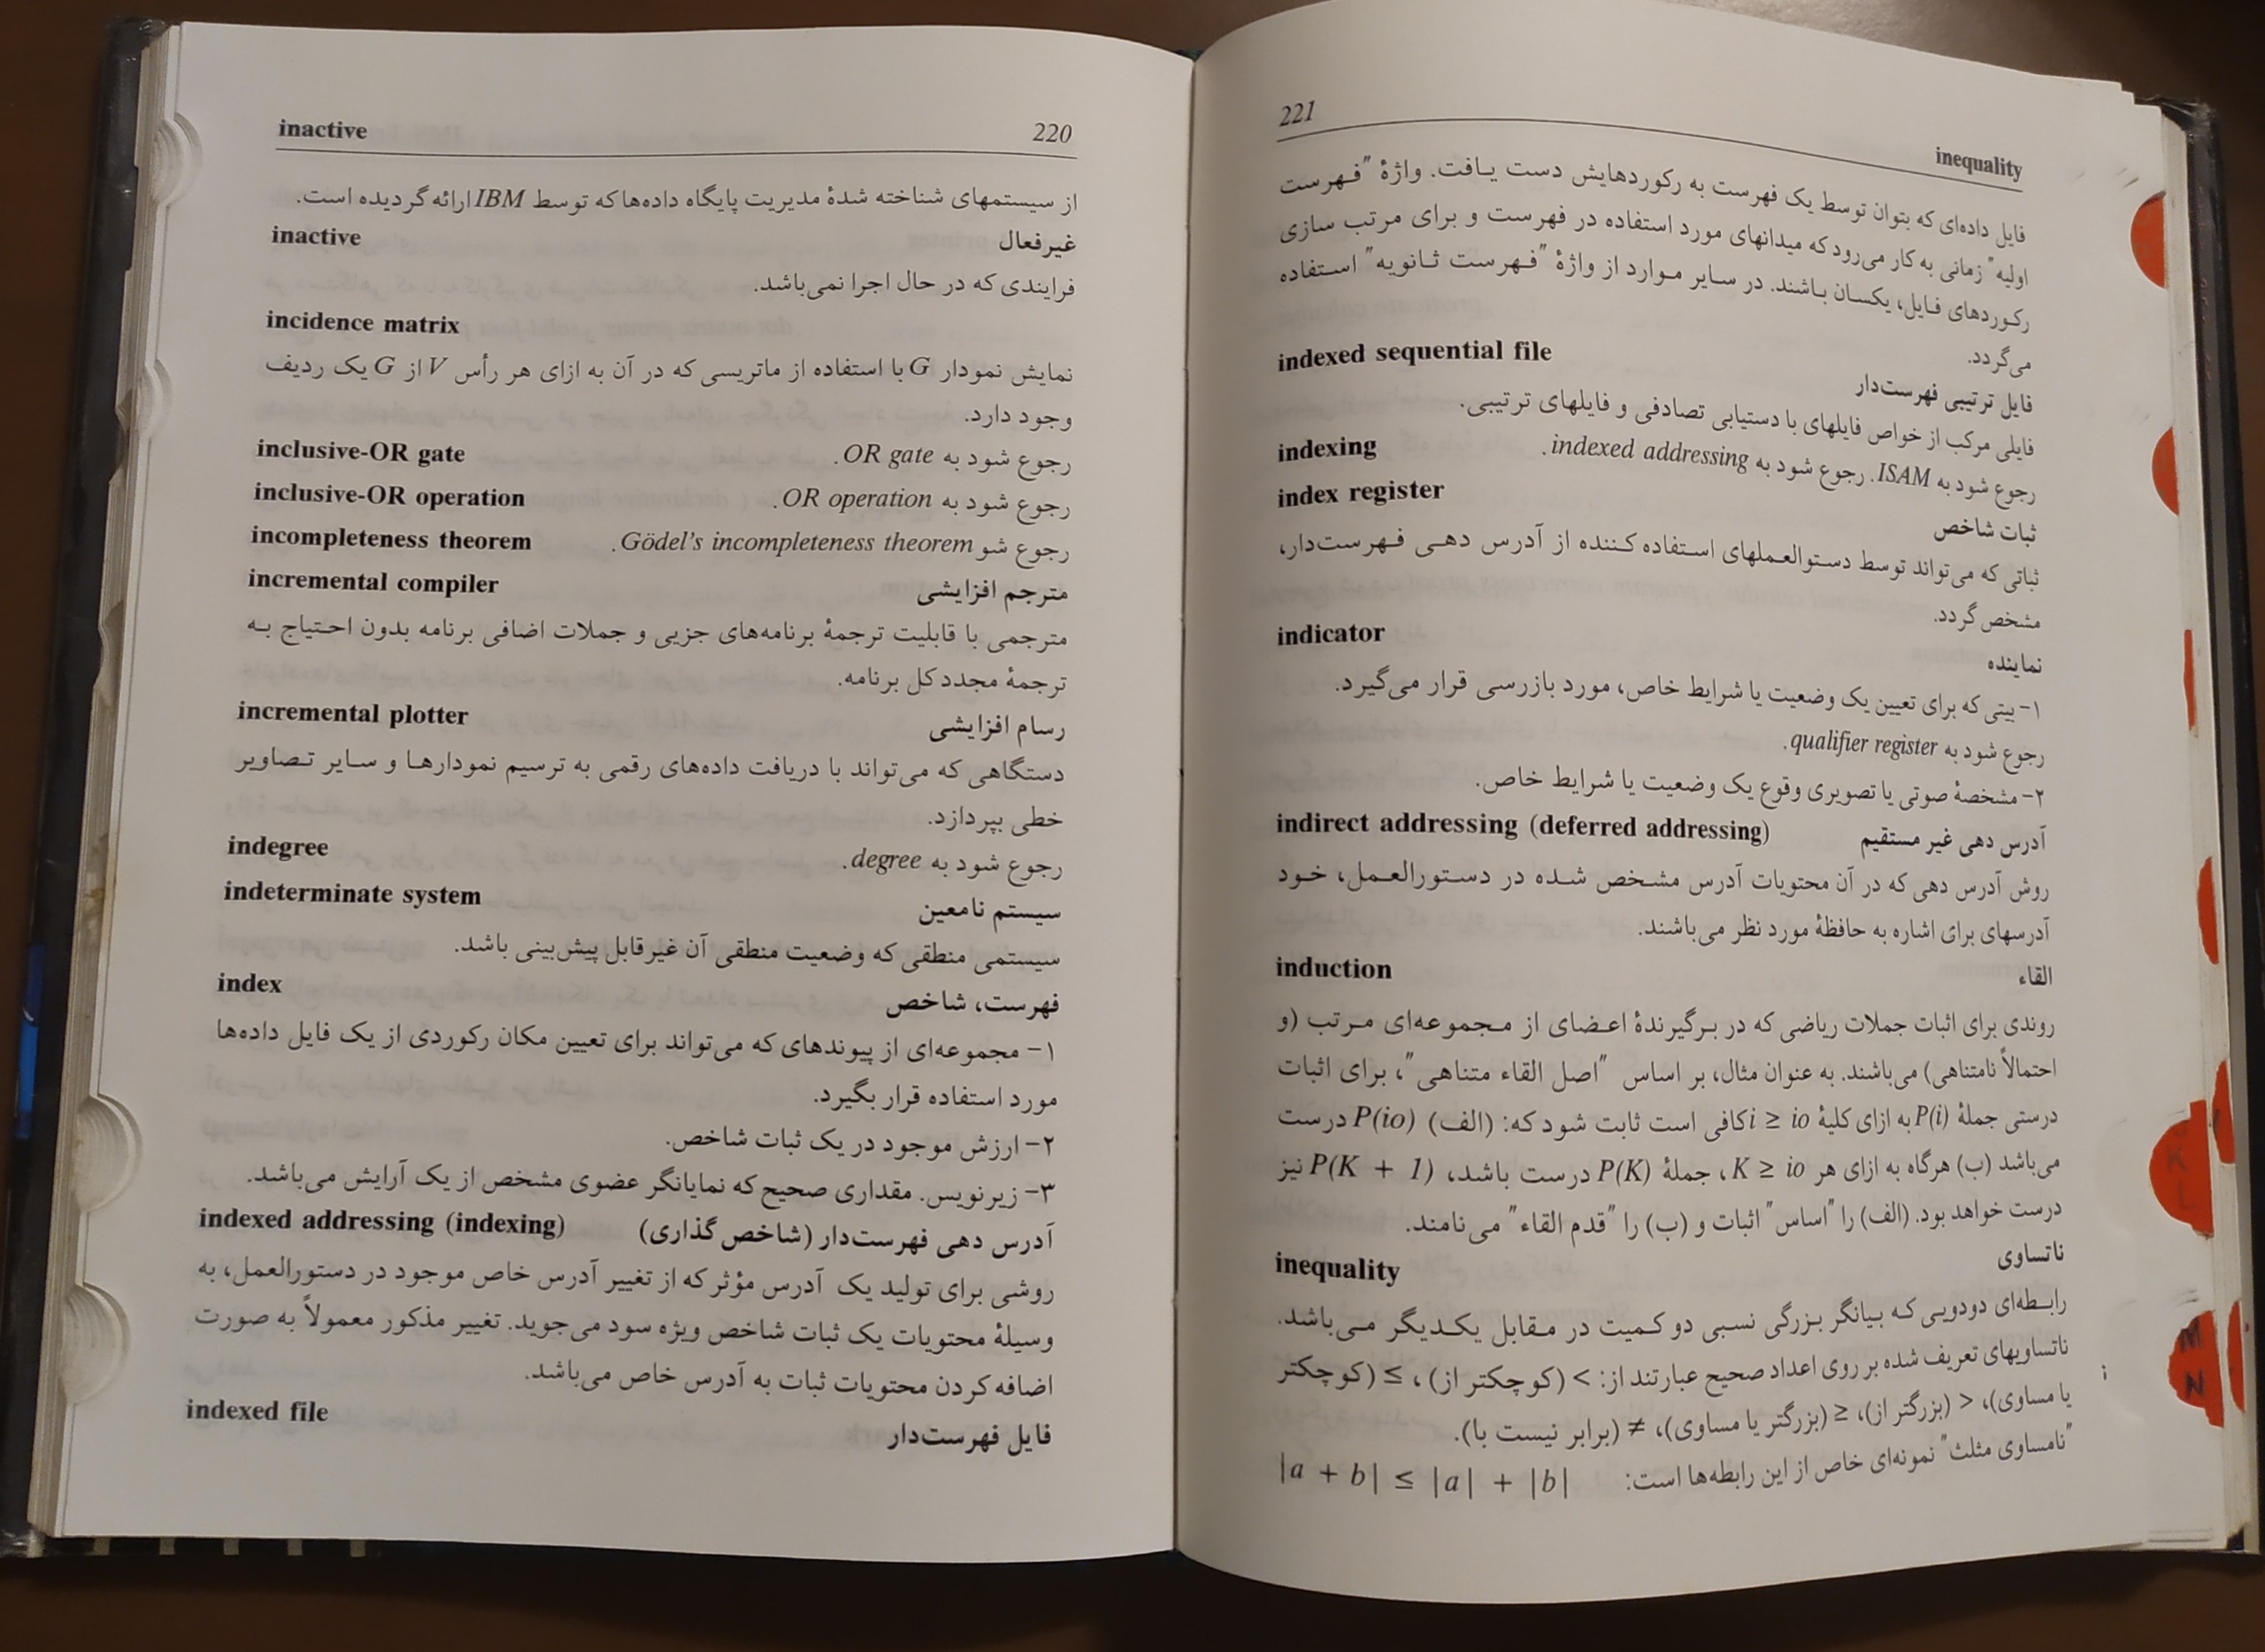 inactive 220
از سیستمهای شناخته شدهٔ مدیریت پایگاه داده‌ها که توسط IBM ارائه گردیده است.
inactive غیرفعال
فرایندی که در حال اجرا نمی‌باشد.
incidence matrix
نمایش نمودار G با استفاده از ماتریسی که در آن به ازای هر رأس V از G یک ردیف
وجود دارد.
inclusive-OR gate رجوع شود به OR gate.
inclusive-OR operation رجوع شود به OR operation.
incompleteness theorem رجوع شو Gödel's incompleteness theorem.
incremental compiler مترجم افزایشی
مترجمی با قابلیت ترجمهٔ برنامه‌های جزیی و جملات اضافی برنامه بدون احتیاج به
ترجمهٔ مجدد کل برنامه.
incremental plotter رسام افزایشی
دستگاهی که می‌تواند با دریافت داده‌های رقمی به ترسیم نمودارها و سایر تصاویر
خطی بپردازد.
indegree رجوع شود به degree.
indeterminate system سیستم نامعین
سیستمی منطقی که وضعیت منطقی آن غیرقابل پیش‌بینی باشد.
index فهرست، شاخص
۱- مجموعه‌ای از پیوندهای که می‌تواند برای تعیین مکان رکوردی از یک فایل داده‌ها
مورد استفاده قرار بگیرد.
۲- ارزش موجود در یک ثبات شاخص.
۳- زیرنویس. مقداری صحیح که نمایانگر عضوی مشخص از یک آرایش می‌باشد.
indexed addressing (indexing) آدرس دهی فهرست‌دار (شاخص گذاری)
روشی برای تولید یک آدرس مؤثر که از تغییر آدرس خاص موجود در دستورالعمل، به
وسیلهٔ محتویات یک ثبات شاخص ویژه سود می‌جوید. تغییر مذکور معمولاً به صورت
اضافه کردن محتویات ثبات به آدرس خاص می‌باشد.
indexed file فایل فهرست‌دار
221 inequality
فایل داده‌ای که بتوان توسط یک فهرست به رکوردهایش دست یافت. واژهٔ "فهرست
اولیه" زمانی به کار می‌رود که میدانهای مورد استفاده در فهرست و برای مرتب سازی
رکوردهای فایل، یکسان باشند. در سایر موارد از واژهٔ "فهرست ثانویه" استفاده
می‌گردد.
indexed sequential file فایل ترتیبی فهرست‌دار
فایلی مرکب از خواص فایلهای با دستیابی تصادفی و فایلهای ترتیبی.
indexing رجوع شود به ISAM. رجوع شود به indexed addressing.
index register ثبات شاخص
ثباتی که می‌تواند توسط دستوالعملهای استفاده کننده از آدرس دهی فهرست‌دار،
مشخص گردد.
indicator نماینده
۱- بیتی که برای تعیین یک وضعیت یا شرایط خاص، مورد بازرسی قرار می‌گیرد.
رجوع شود به qualifier register.
۲- مشخصهٔ صوتی یا تصویری وقوع یک وضعیت یا شرایط خاص.
indirect addressing (deferred addressing) آدرس دهی غیر مستقیم
روش آدرس دهی که در آن محتویات آدرس مشخص شده در دستورالعمل، خود
آدرسهای برای اشاره به حافظهٔ مورد نظر می‌باشند.
induction القاء
روندی برای اثبات جملات ریاضی که در برگیرندهٔ اعضای از مجموعه‌ای مرتب (و
احتمالاً نامتناهی) می‌باشند. به عنوان مثال، بر اساس "اصل القاء متناهی"، برای اثبات
درستی جملهٔ P(i) به ازای کلیهٔ i ≥ io کافی است ثابت شود که: (الف) P(io) درست
می‌باشد (ب) هرگاه به ازای هر K ≥ io، جملهٔ P(K) درست باشد، P(K + 1) نیز
درست خواهد بود. (الف) را "اساس" اثبات و (ب) را "قدم القاء" می‌نامند.
inequality ناتساوی
رابطه‌ای دودویی که بیانگر بزرگی نسبی دو کمیت در مقابل یکدیگر می‌باشد.
ناتساویهای تعریف شده بر روی اعداد صحیح عبارتند از: < (کوچکتر از)، ≤ (کوچکتر
یا مساوی)، > (بزرگتر از)، ≥ (بزرگتر یا مساوی)، ≠ (برابر نیست با).
"نامساوی مثلث" نمونه‌ای خاص از این رابطه‌ها است: |a + b| ≤ |a| + |b|
K
L
M
N